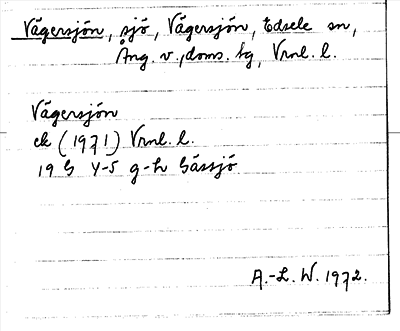 Vägersjön, sjö, Vägersjön, Edsele sn,
Ång. v., doms. sg, Vrnl. l.
Vägersjön
ek (1971) Vrnl. l.
19 G 4-5 g-h Gåssjö
A.-L. W. 1972.